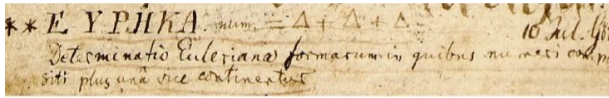 ** ΕΥΡΗΚΑ. num. = Δ + Δ + Δ. 10 Jul.
Determinatio Euleriana formarum in quibus numeri compo
siti plus unâ vice continentur